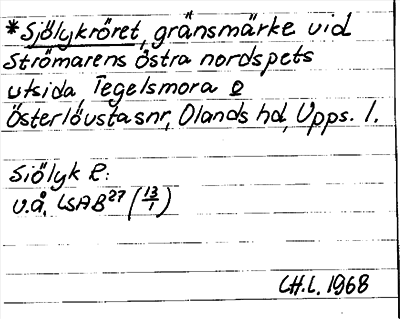 *Sjölykröret, gränsmärke vid
Strömarens östra nordspets
utsida, Tegelsmora o
Österlövsta snr, Olands hd, Upps. l.
Siölyk R:
u.å. LSAB²⁷ (13/1)
CH.L. 1968